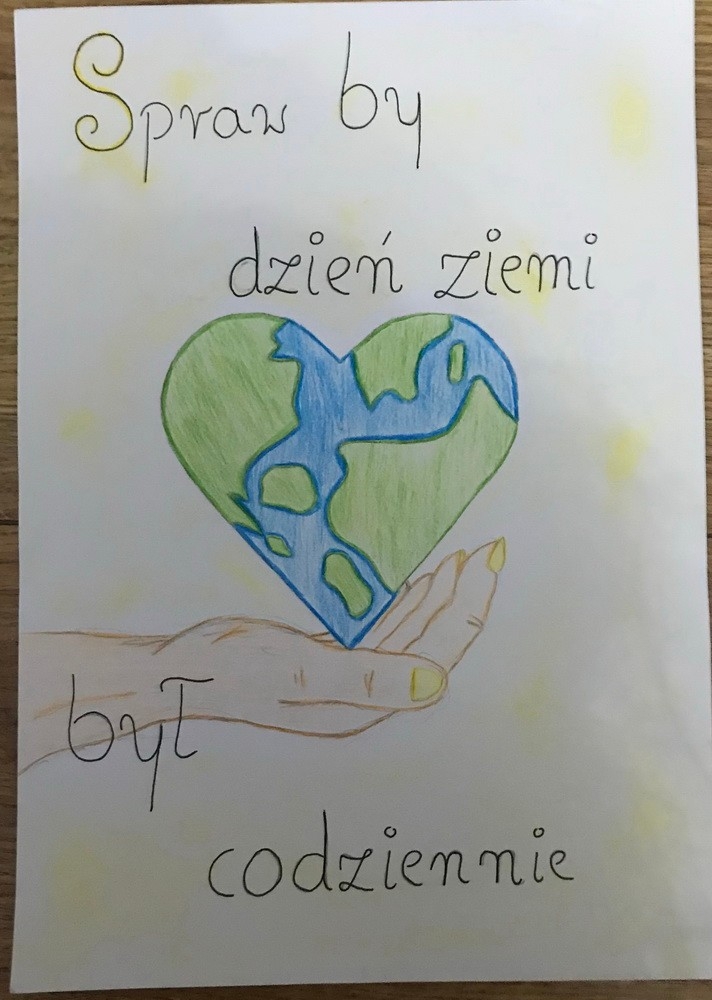 Spraw by
dzień ziemi
był
codziennie